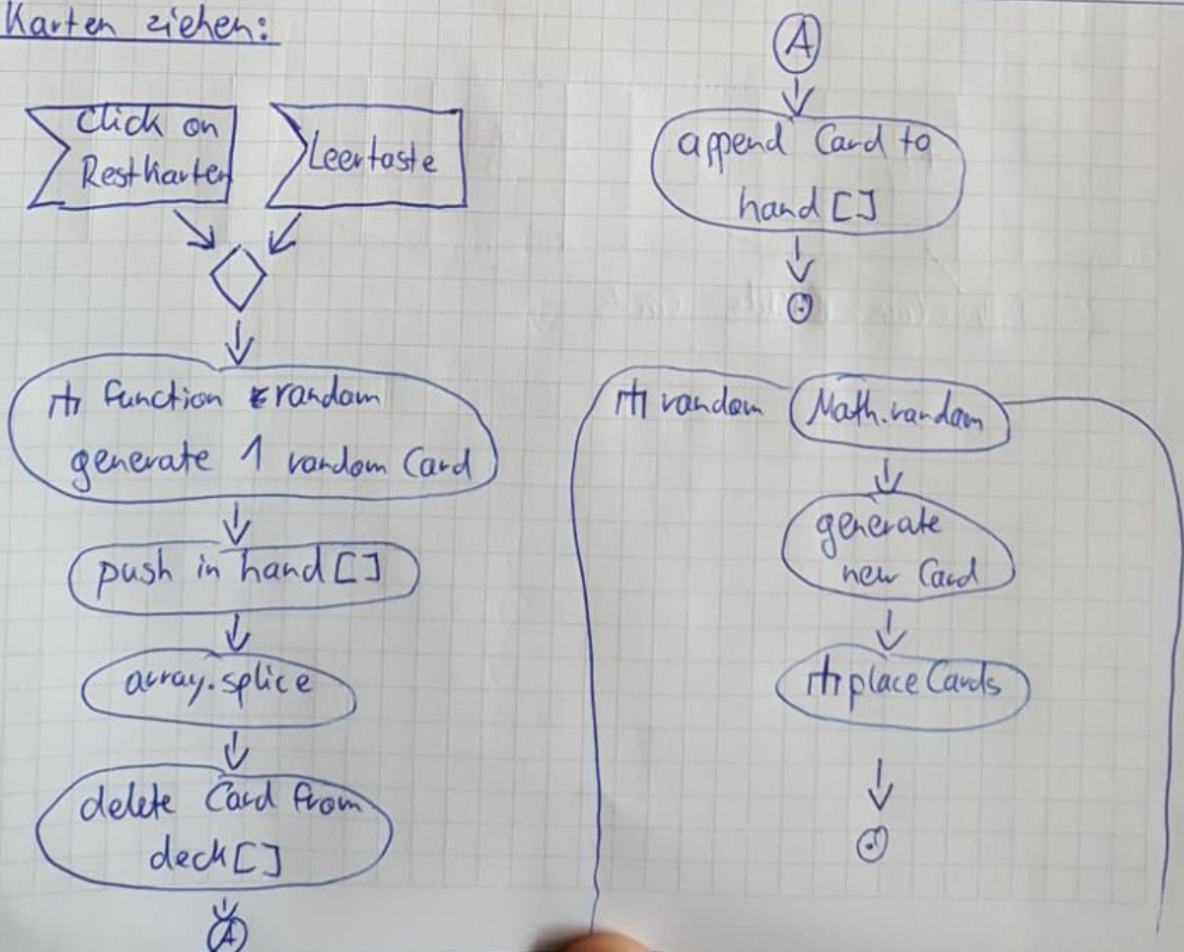 Karten ziehen:
Click on
Restkarten
Leertaste
function random
generate 1 random Card
push in hand[]
array.splice
delete Card from
deck[]
A
A
append Card to
hand[]
random
Math.random
generate
new Card
place Cards